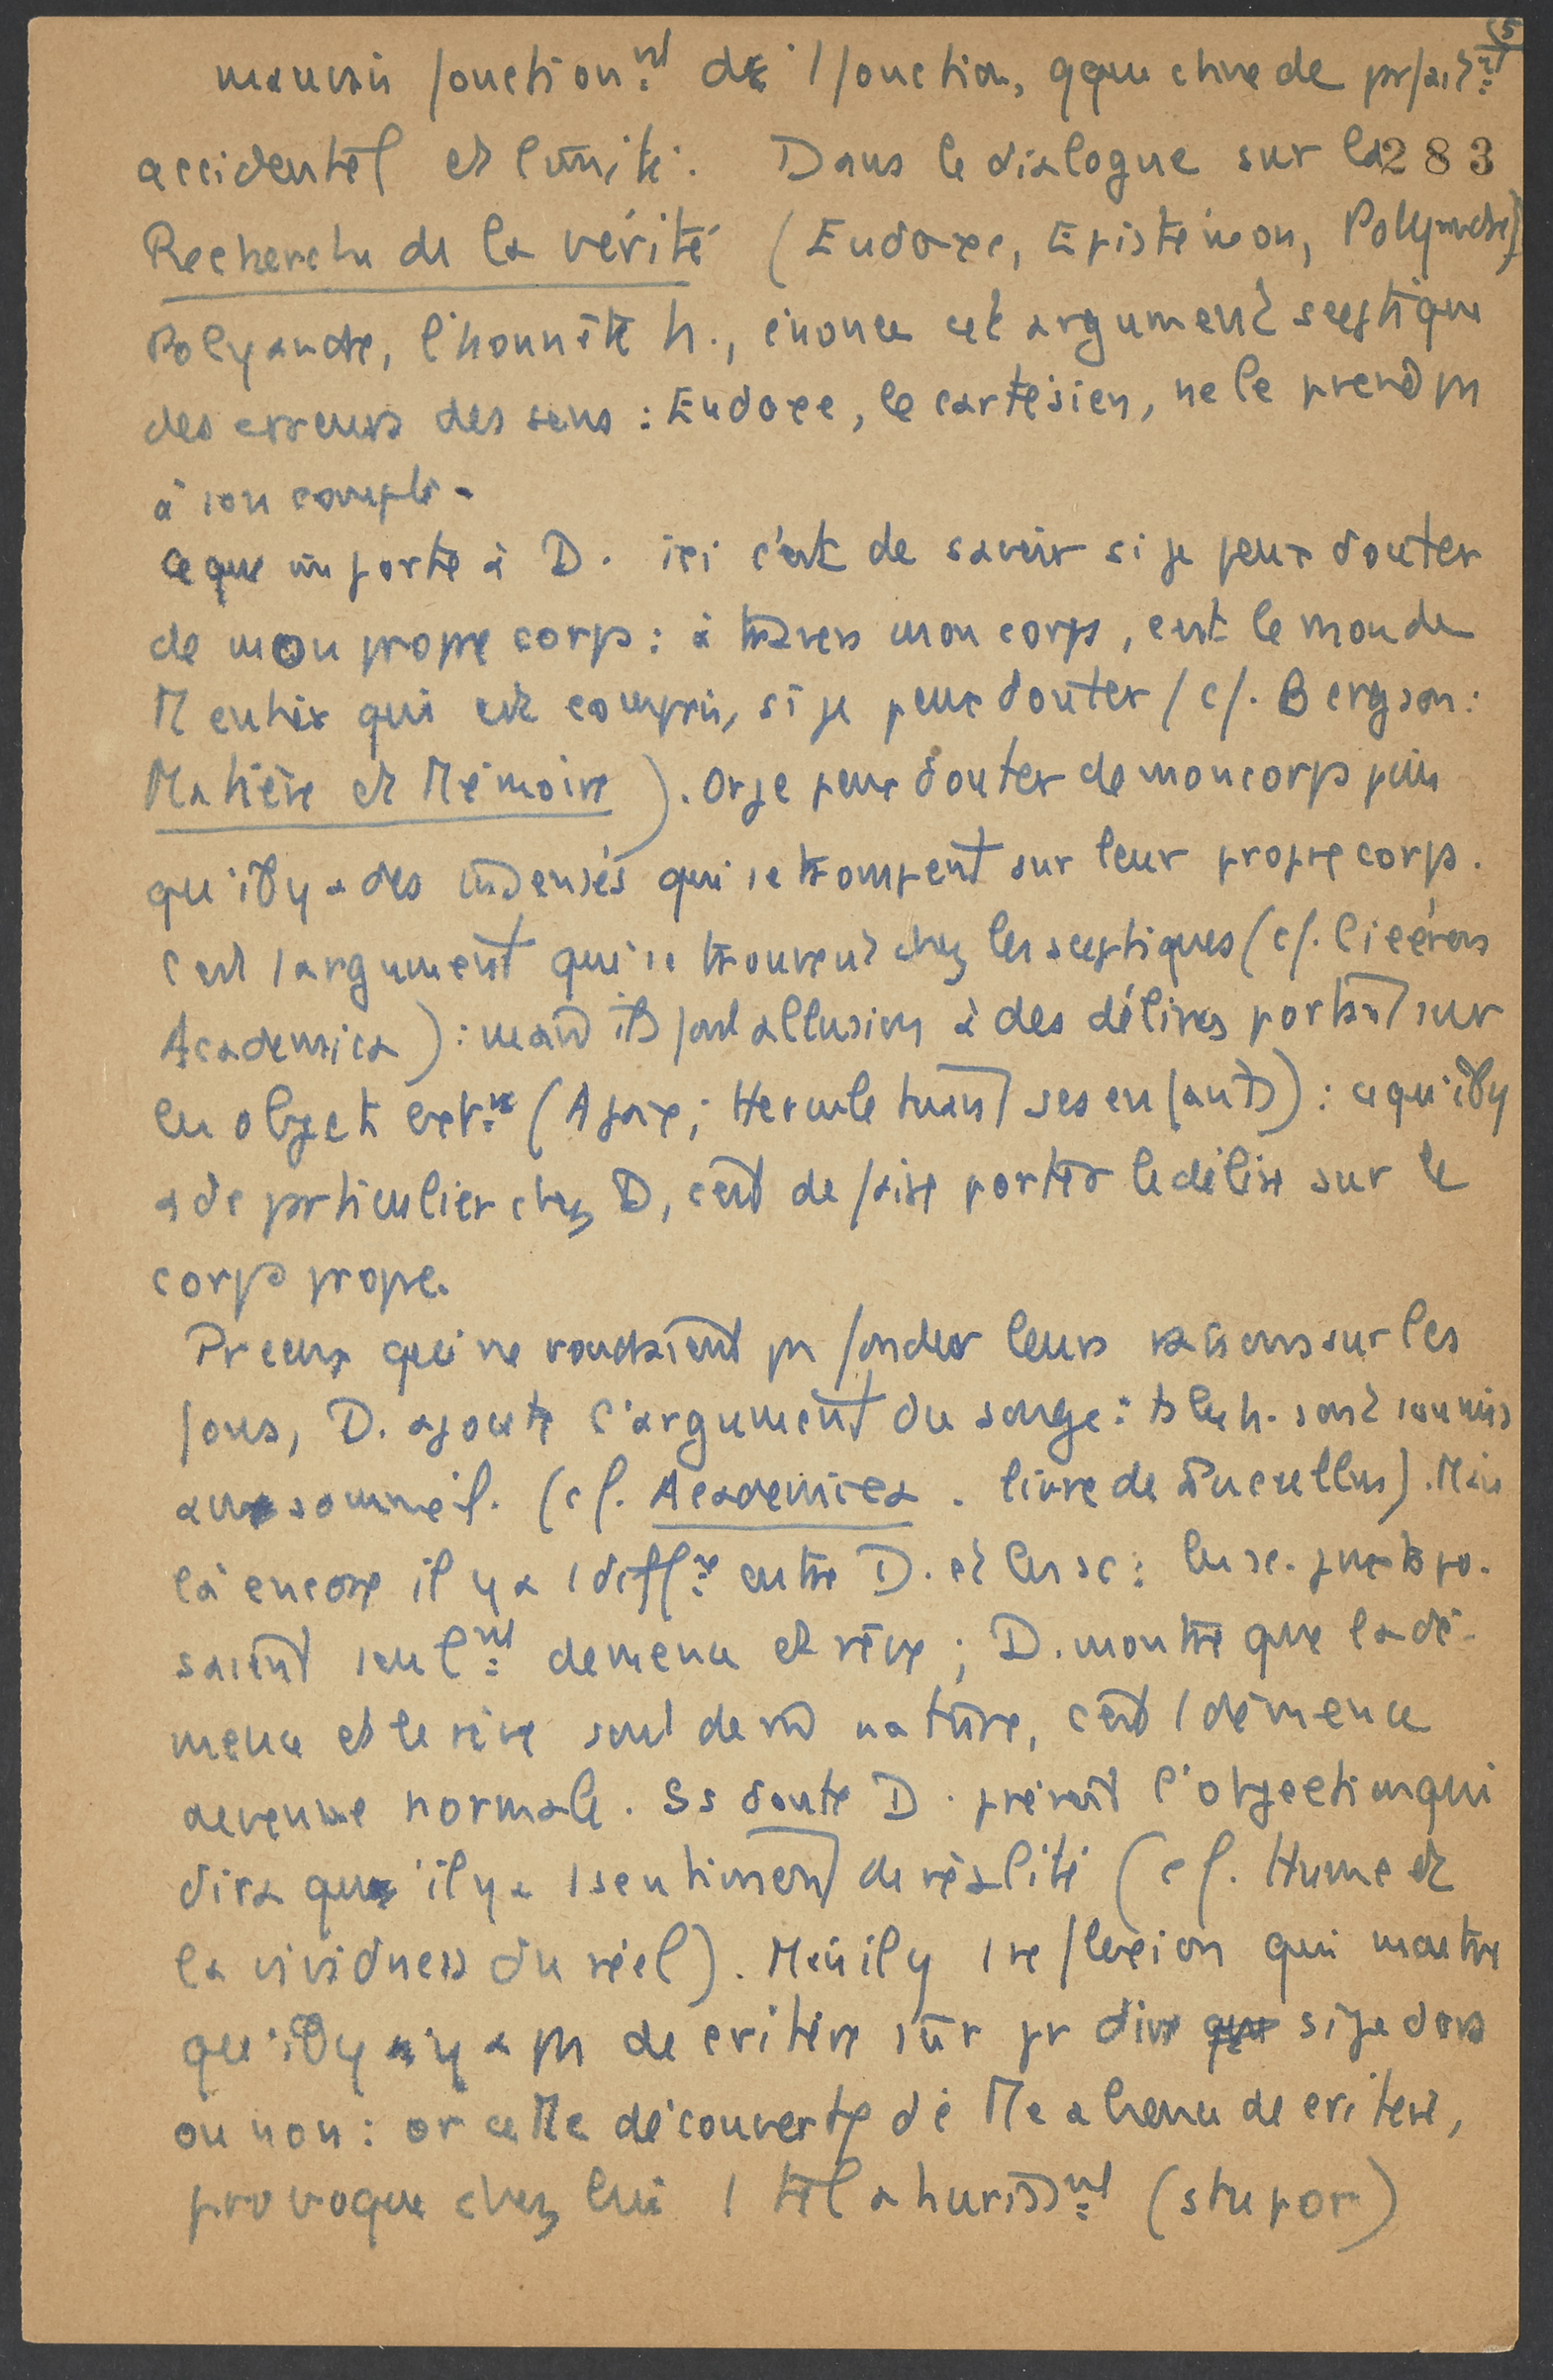 5
mauvais fonctionnt de 1 fonction, qque chose de prfait
accidentel et limité. Dans le dialogue sur la 283
Recherche de la vérité (Eudoxe, Epistémon, Polyandre)
Polyandre, l'honnête h., énonce cet argument sceptique
des erreurs des sens : Eudoxe, le cartésien, ne le prend ps
à son compte.
Ce que importe à D. ici c'est de savoir si je peux douter
de mon propre corps : à travers mon corps, c'est le monde
M entier qui est compris, si je peux douter (cf. Bergson :
Matière et Mémoire). Or je peux douter de mon corps puis
qu'il y a des insensés qui se trompent sur leur propre corps.
C'est l'argument qui se trouvent chez les sceptiques (cf. Cicéron
Academica) : mais ils font allusion à des délires portant sur
les objets extrs (Ajax ; Hercule tuant ses enfants) : ce qu'il y
a de prticulier chez D, c'est de faire porter le délire sur le
corps propre.
Pr ceux qui ne voudraient ps fonder leurs raisons sur les
fous, D. ajoute l'argument du songe : ts les h. sont soumis
au sommeil. (cf. Academica. livre de Lucullus). Mais
là encore il y a 1 diffce entre D. et les sc : les sc. juxtapo-
saient seult démence et rêve ; D. montre que la dé-
mence et le rêve sont de m nature, c'est 1 démence
devenue normale. Ss doute D. prévoit l'objection qui
dira qu'il y a 1 sentiment de réalité (cf. Hume et
la vividness du réel). Mais il y 1 reflexion qui montre
qu'il y n'y a ps de critère sûr pr dire que si je dors
ou non : or cette découverte de l'absence de critère,
provoque chez lui 1 tel ahurisst (stupor)